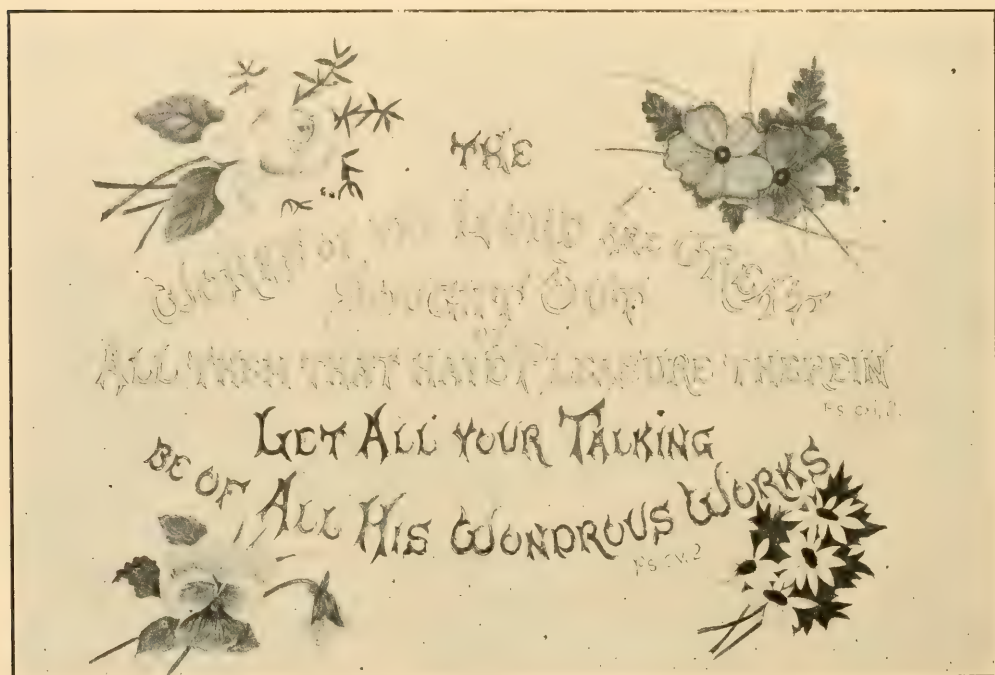 THE
WORKS OF THE LORD ARE GREAT
SOUGHT OUT
OF
ALL THEM THAT HAVE PLEASURE THEREIN
Ps cxi, 2.
LET ALL YOUR TALKING
BE OF ALL HIS WONDROUS WORKS
Ps cv. 2